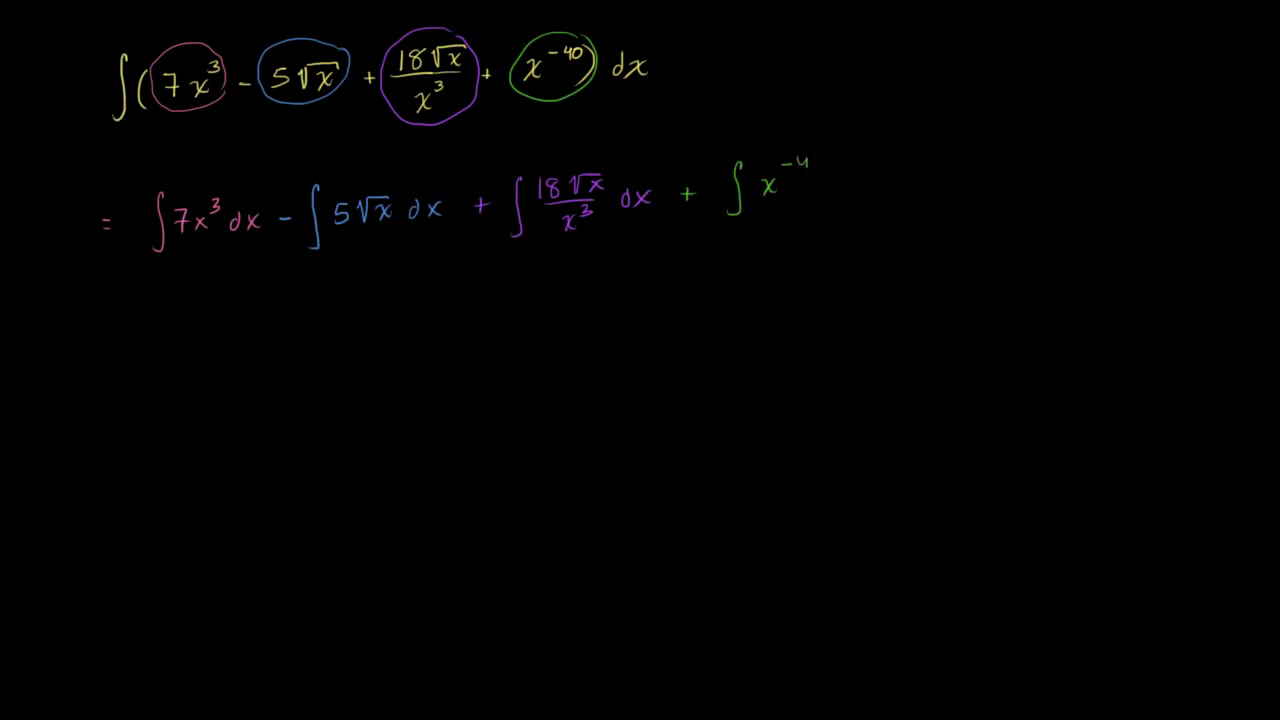 ∫(7x³ - 5√x + 18√x/x³ + x⁻⁴⁰) dx
= ∫7x³ dx - ∫5√x dx + ∫18√x/x³ dx + ∫x⁻⁴